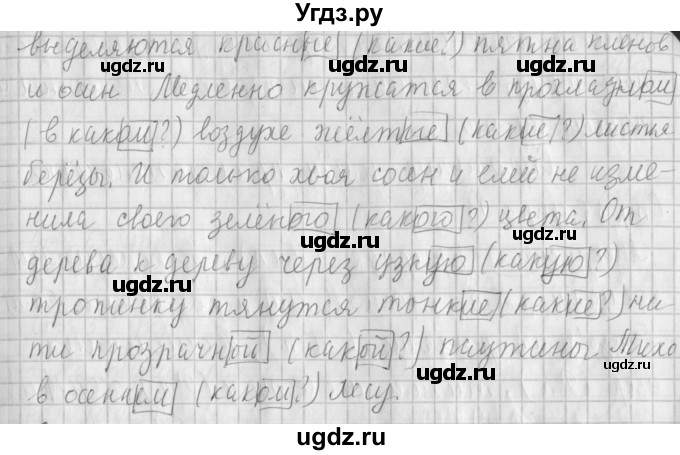 Угдз.ру
выделяются красные (какие?) пятна кленов
и осин Медленно кружатся в прохладном
(в каком?) воздухе жёлтые (какие?) листья
берёзы. И только хвоя сосен и елей не изме-
нила своего зелёного (какого?) цвета. От
дерева к дереву через узкую (какую?)
тропинку тянутся тонкие (какие?) ни-
ти прозрачной (какой?) паутины Тихо
в осеннем (каком?) лесу.
ugdz.ru
ugdz.ru
ugdz.ru
ugdz.ru
ugdz.ru
ugdz.ru
ugdz.ru
ugdz.ru
ugdz.ru
ugdz.ru
ugdz.ru
ugdz.ru
ugdz.ru
ugdz.ru